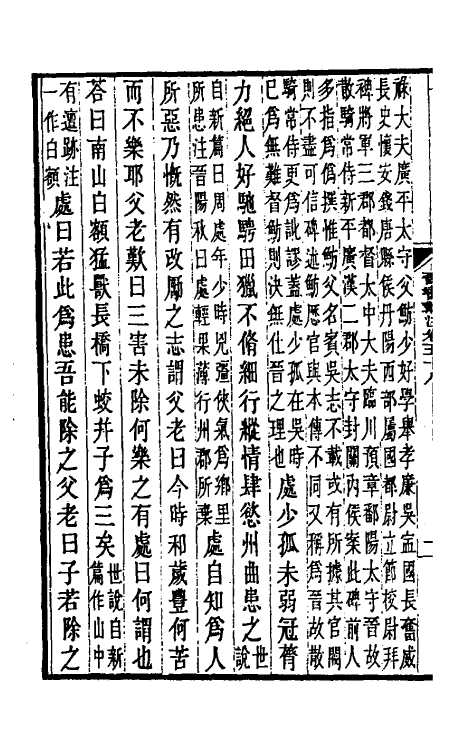 祿大夫廣平太守父魴少好學舉孝廉吳寧國長奮威
長史懷安錢唐縣侯丹陽西部屬國都尉立節校尉拜
裨將軍三郡都督太中大夫臨川預章鄱陽太守晉故
散騎常侍新平廣漢二郡太守封關內侯案此碑前人
多指爲僞撰惟魴父名賓吳志不載或有所據其官閥
則不盡可信碑述魴歷官與本傳不同又稱爲晉故散
騎常侍更爲訛謬蓋處少孤在吳時
已爲無難督魴則決無仕晉之理也
處少孤未弱冠膂
力絕人好馳騁田獵不脩細行縱情肆慾州曲患之世說
自新篇曰周處年少時兇彊俠氣爲鄉里
所患注晉陽秋曰處輕果薄行州郡所棄
處自知爲人
所惡乃慨然有改勵之志謂父老曰今時和歲豐何苦
而不樂耶父老歎曰三害未除何樂之有處曰何謂也
答曰南山白額猛獸長橋下蛟并子爲三矣
世說自新
篇作山中
有邅跡注
一作白額
處曰若此爲患吾能除之父老曰子若除之